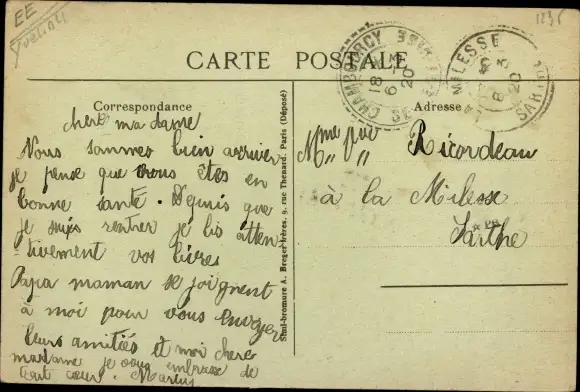 EE
Yvelin
1236
CARTE POSTALE
CHAMBOURCY
18
6-3
20
LA MILESSE
8
3
20
SARTHE
Correspondance
Adresse
chere madame
Nous sommes bien arriver
je pense que vous êtes en
bonne santé. Depuis que
je suis rentrer je lis atten
tivement vos livres
Papa maman se joignent
à moi pour vous envoyer
leurs amitiés et moi chere
madame je vous embrasse de
tout cœur. Marcy
Simi-bromure A. Breger frères, 9, rue Thenard, Paris (Déposé)
Mme Vve Ricordeau
à la Milesse
Sarthe